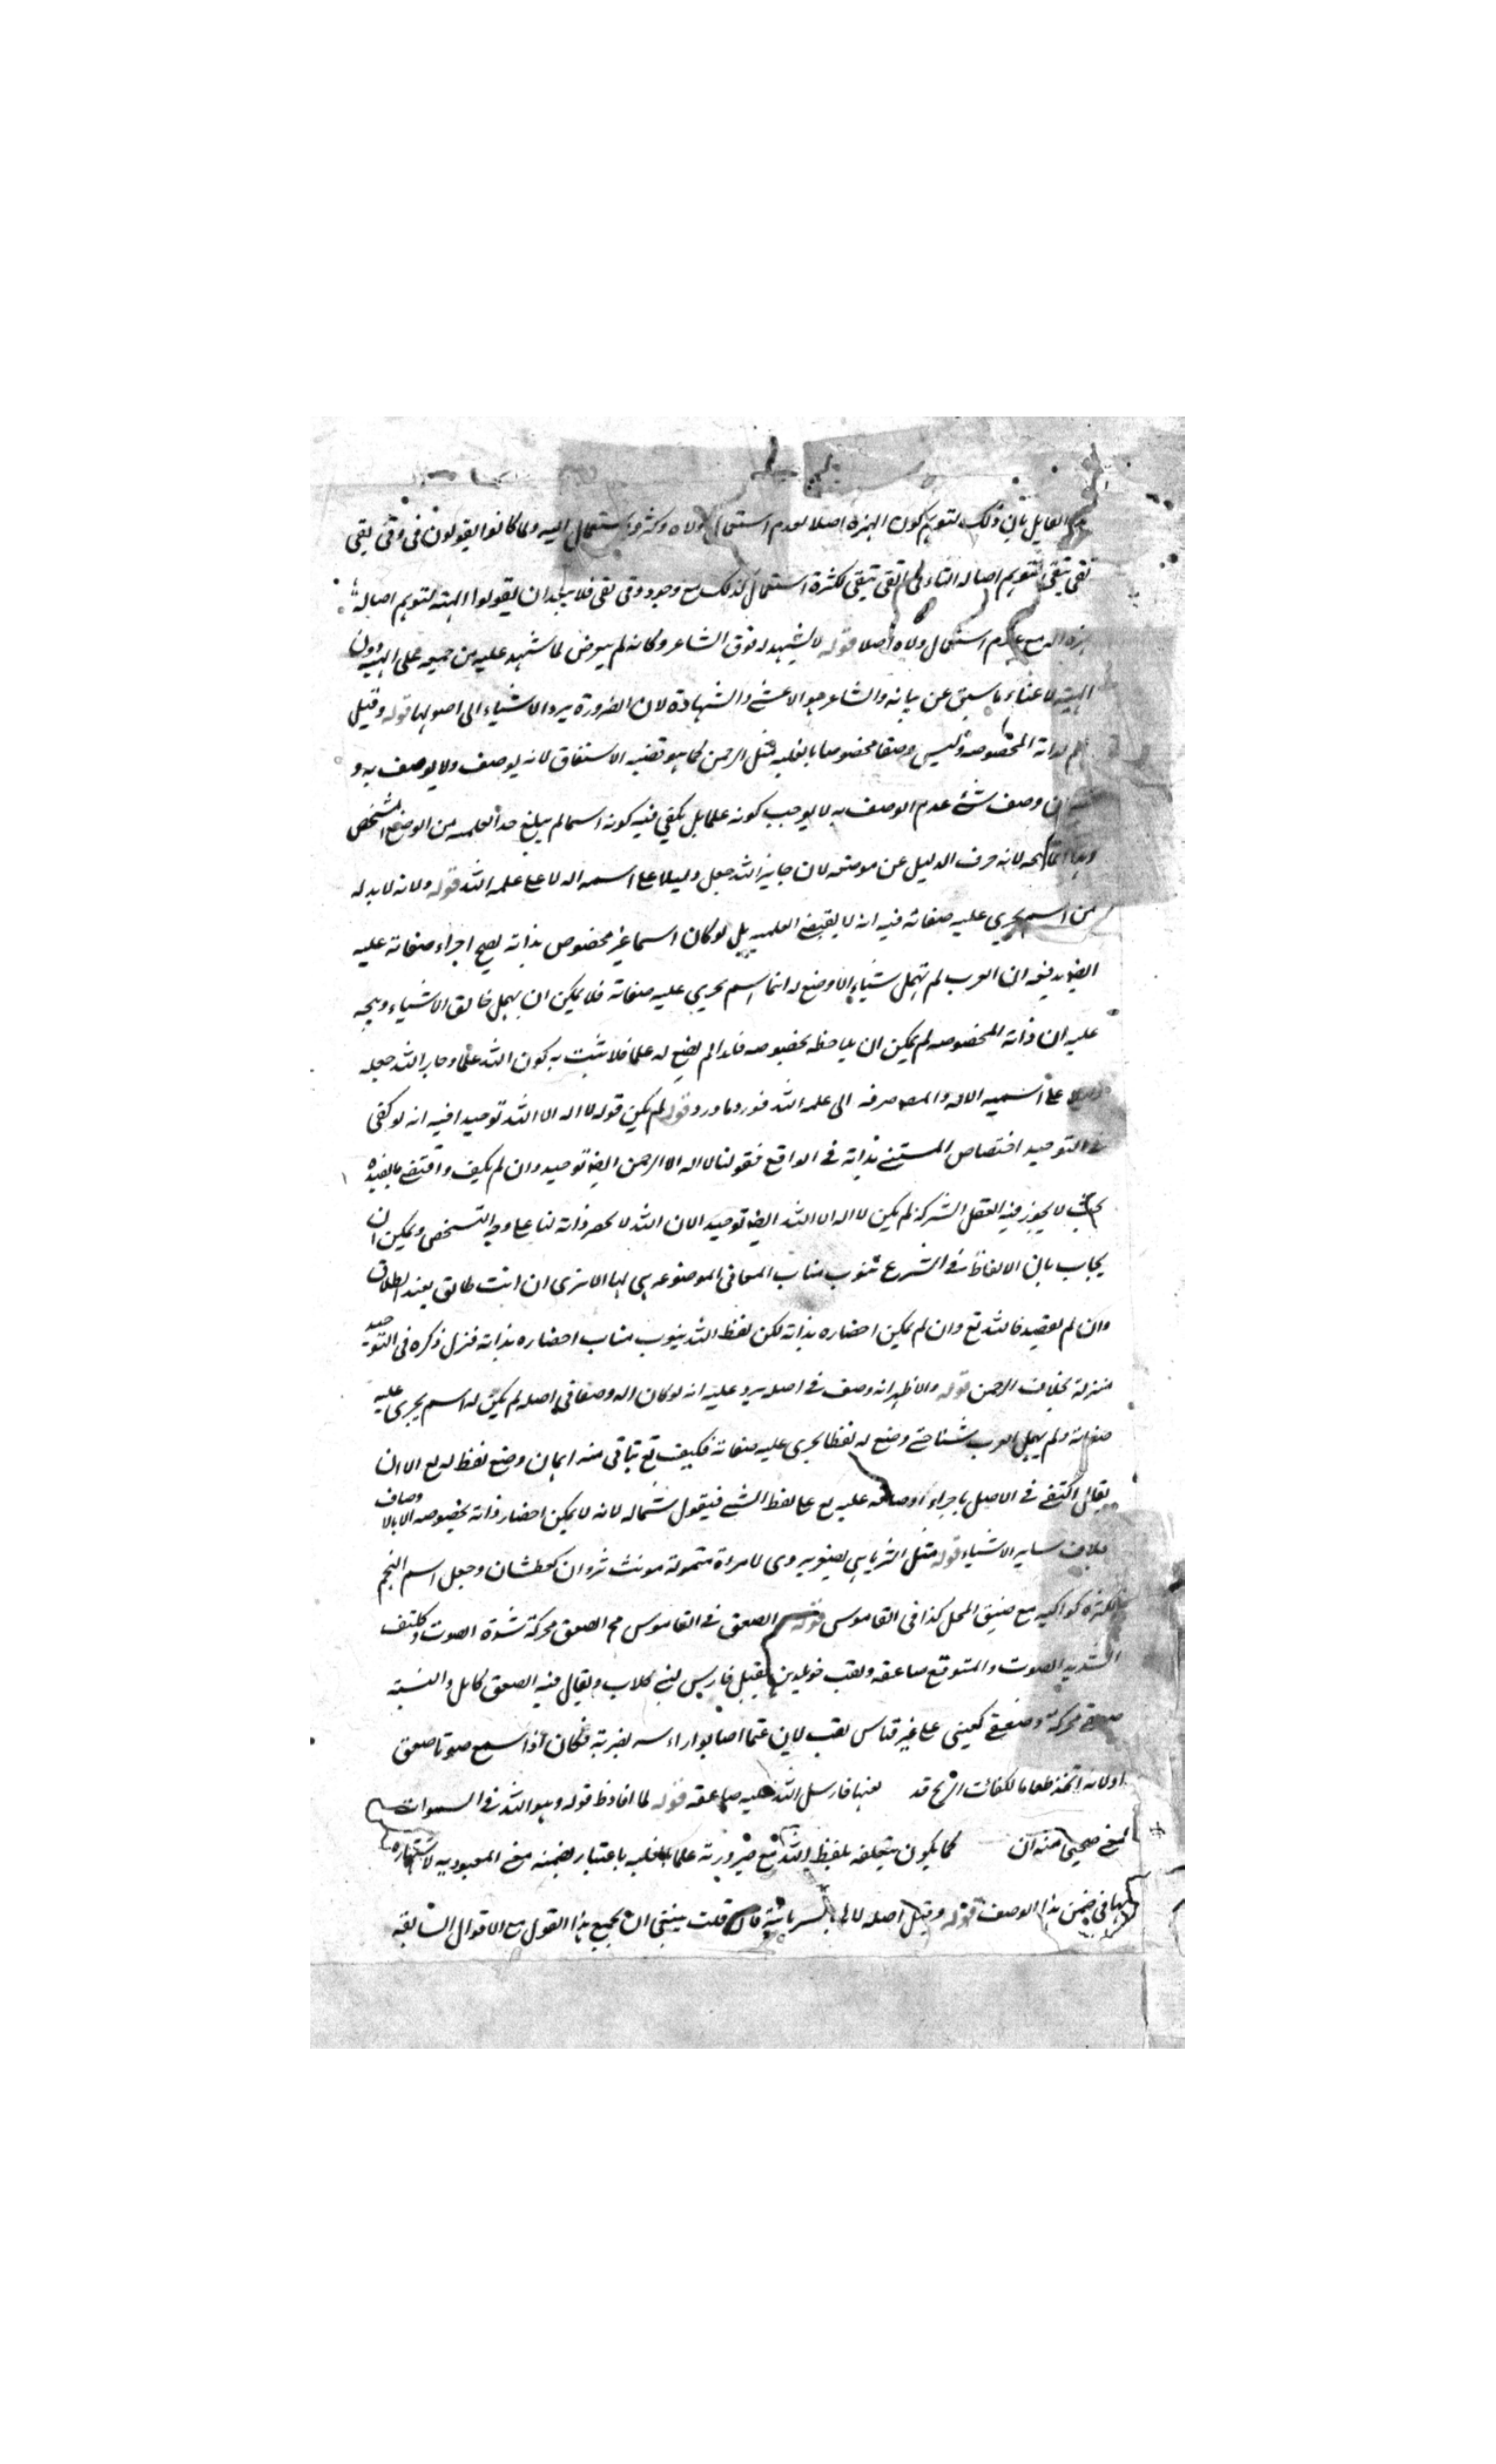 القايل بان ذلك لتوهم كون الهمزة اصلا لعدم استعمال ولاه وكثرة استعمال اليه ولما كانوا يقولون فى وقى يقى
تقى يتقى لتوهم اصالة التاء فى اتقى يتقى لكثرة استعمال كذلك مع وجود وقى تقى فلا يبعد ان يقولوا الهته لتوهم اصالة
همزة اله مع عدم استعمال ولاه اصلا قوله لا يشهد له قول الشاعر وكانه لم يعرض لما شهد عليه من جمعه على الهه دون
الهته لا غناء ما سبق عن بيانه والشاعر هو الاعشى والشهادة لان الضرورة يرد الاشياء الى اصولها قوله وقيل
علم لذاته المخصوصه وليس وصفا مخصوصا بالغلبه مثل الرحمن كما هو قضيه الاشتقاق لانه يوصف ولا يوصف به و
ان وصف شئ عدم الوصف به لا يوجب كونه علما بل يكفى فيه كونه اسما لم يبلغ حد العلميه من الوضع المشخص
لانه حرف الدليل عن موضعه لان جايز الله جعل دليلا على اسميه اله لا على علميه الله قوله ولانه لا بد له
من اسم يجرى عليه صفاته فيه انه لا يقتضى العلميه بل لو كان اسما غير مخصوص بذاته لصح اجراء صفاته عليه
ايضا ان العرب لم تهمل شيئا الا وضع له اسم يجرى عليه صفاته فلا يمكن ان يهمل خالق الاشياء ويتجه
عليه ان ذاته المخصوصه لم يمكن ان يلاحظه بخصوصه فلذا لم يضع له علما فلا يثبت به كون الله علما وجار الله جعله
على اسميه الاله والمص صرفه الى علميه الله فورد ما ورد قوله لم يكن قوله لا اله الا الله توحيدا فيه انه لو كفى
فى التوحيد اختصاص المستثنى بذاته فى الواقع فقولنا لا اله الا الرحمن ايضا توحيد وان لم يكف واقتضى ما يفيده
بحيث لا يجوز فيه العقل الشركة لم يكن لا اله الا الله ايضا توحيد الان الله لا يحصر ذاته لنا على وجه التشخص ويمكن ان
يجاب بان الالفاظ فى الشرع تنوب مناب المعانى الموضوعه هى لها الا ترى ان انت طالق يفيد الطلاق
وان لم يقصد فالله تع وان لم يمكن احضاره بذاته لكن لفظ الله ينوب مناب احضاره بذاته فنزل ذكره فى التوحيد
منزلة بخلاف الرحمن قوله والاظهر انه وصف فى اصله يرد عليه انه لو كان اله وصفا فى اصله لم يكن له اسم يجرى عليه
صفاته ولم يهمل العرب شيئا حتى وضع له لفظا يجرى عليه صفاته فكيف تع يتاتى منه اهمال وضع لفظ له تع الا ان
يقال اكتفى فى الاصل باجراء اوصافه عليه تع على لفظ الشئ فيقول شئ اله لانه لا يمكن احضار ذاته بخصوصه الا بالاوصاف
بخلاف ساير الاشياء قوله مثل الثريا هى تصغير ثروى لامراة متمولة مونث ثروان كعطشان وجعل اسم النجم
لكثرة كواكبه مع ضيق المحل كذا فى القاموس قوله الصعق فى القاموس مح الصعق محركة شدة الصوت وككتف
الشديد الصوت والمتوقع صاعقه ولقب خويلد بن نفيل فارس لبنى كلاب ويقال فيه الصعق كابل والنسبة
صعقى محركة وصعقى كعينى على غير قياس لقب لان تميما اصابوا راسه بضربة فكان اذا سمع صوتا صعق
او لانه اتخذ طعاما لكفات الريح قد لعنها فارسل الله عليه صاعقه قوله لما افاد ظ قوله وهو الله فى السموات
معنى صحيحا منه ان كما يكون بتعلقه بلفظ الله تع صيرورته علما بالغلبه باعتبار تضمنه معنى المعبوديه لاشتهاره
بها فى ضمن هذا الوصف قوله وقيل اصله لاها بالسريانية فان قلت ينبغى ان يجمع هذا القول مع الاقوال السابقه